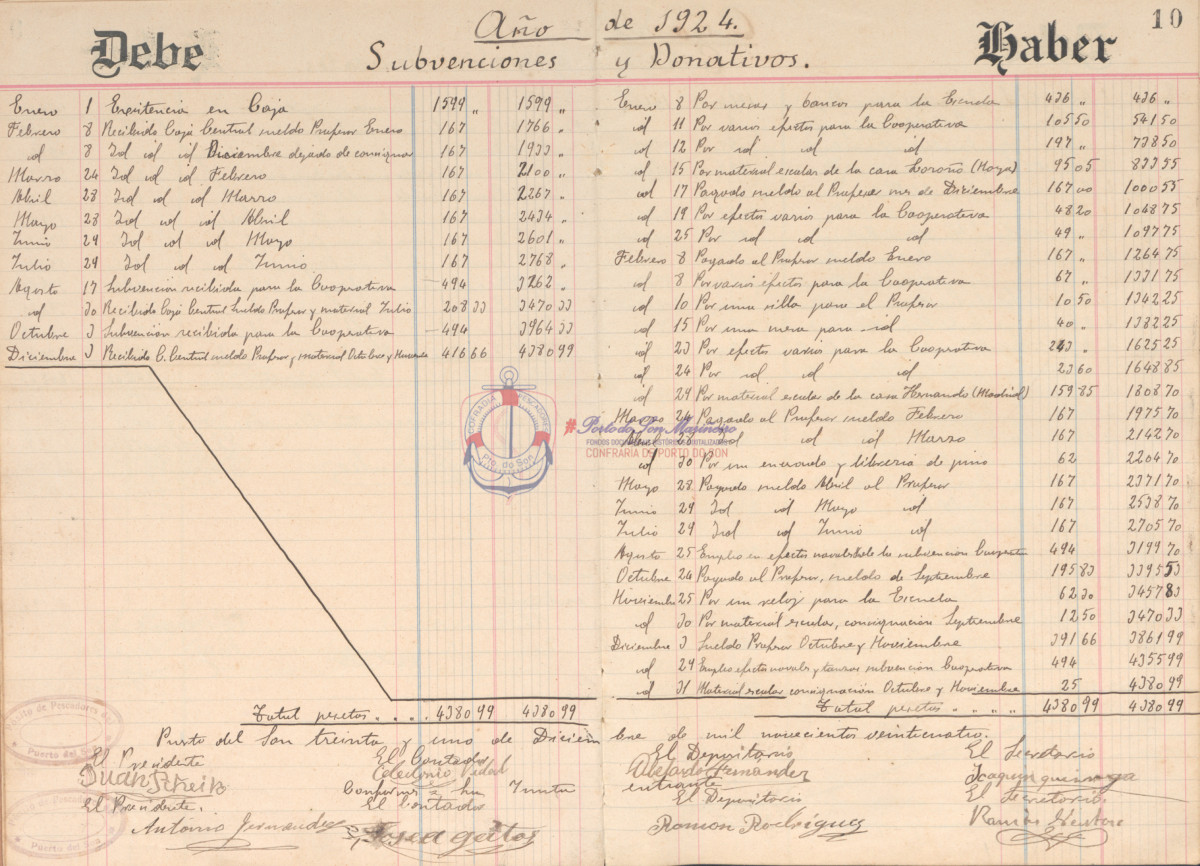 Año de 1924.
10
Debe
Haber
Subvenciones y Donativos.
Enero 1 Existencia en Caja 1599 " 1599 "
Febrero 8 Recibido Caja Central sueldo Profesor Enero 167 1766 "
id 8 Id id id Diciembre dejado de consignar 167 1933 "
Marzo 24 Id id id Febrero 167 2100 "
Abril 28 Id id id Marzo 167 2267 "
Mayo 28 Id id id Abril 167 2434 "
Junio 29 Id id id Mayo 167 2601 "
Julio 29 Id id id Junio 167 2768 "
Agosto 17 Subvención recibida para la Cooperativa 494 3262 "
id 30 Recibido Caja Central sueldo Profesor y material Julio 208 33 3470 33
Octubre 3 Subvención recibida para la Cooperativa 494 3964 33
Diciembre 3 Recibido C. Central sueldo Profesor y material Octubre y Novie 416 66 4380 99
Total pesetas . . . . 4380 99 4380 99
Enero 8 Por mesas y bancos para la Escuela 436 " 436 "
id 11 Por varios efectos para la Cooperativa 105 50 541 50
id 12 Por id id id 197 " 738 50
id 15 Por material escolar de la casa (Moya) 95 05 833 55
id 17 Pagado sueldo al Profesor mes de Diciembre 167 00 1000 55
id 19 Por efectos varios para la Cooperativa 48 20 1048 75
id 25 Por id id id 49 " 1097 75
Febrero 8 Pagado al Profesor sueldo Enero 167 " 1264 75
id 8 Por varios efectos para la Cooperativa 67 " 1331 75
id 10 Por una silla para el Profesor 10 50 1342 25
id 15 Por una mesa para id 40 " 1382 25
id 23 Por efectos varios para la Cooperativa 243 " 1625 25
id 24 Por id id id 23 60 1648 85
id 29 Por material escolar de la casa Hernando (Madrid) 159 85 1808 70
Marzo 24 Pagado al Profesor sueldo Febrero 167 1975 70
Abril 28 id id id Marzo 167 2142 70
id 30 Por un encerado y librería de pino 62 2204 70
Mayo 28 Pagado sueldo Abril al Profesor 167 2371 70
Junio 29 Id id Mayo id 167 2538 70
Julio 29 Id id Junio id 167 2705 70
Agosto 25 Empleo en efectos navales de la subvención 494 3199 70
Octubre 24 Pagado al Profesor, sueldo de Septiembre 195 83 3395 53
Noviembre 25 Por un reloj para la Escuela 62 30 3457 83
id 30 Por material escolar, consignación Septiembre 12 50 3470 33
Diciembre 3 Sueldo Profesor Octubre y Noviembre 391 66 3861 99
id 29 Empleo efectos navales y subvención Cooperativa 494 4355 99
id 31 Material escolar consignación Octubre y Noviembre 25 4380 99
Total pesetas . " . " 4380 99 4380 99
COFRADIA PESCADORES
Pto. do Son
#Porto do Son Mariñeiro
CONFRARIA DE PORTO DO SON
Pósito de Pescadores
Puerto del Son
Puerto del Son treinta y uno de Diciembre de mil novecientos veinticuatro.
El Presidente El Contador El Depositario El Secretario
Celedonio Vidal Fernandez Joaquin
Conforme: La Junta entrante
El Presidente. El Contador El Depositario El Secretario.
Antonio Fernandez José gatos Ramon Rodriguez Ramón
Puerto del Son